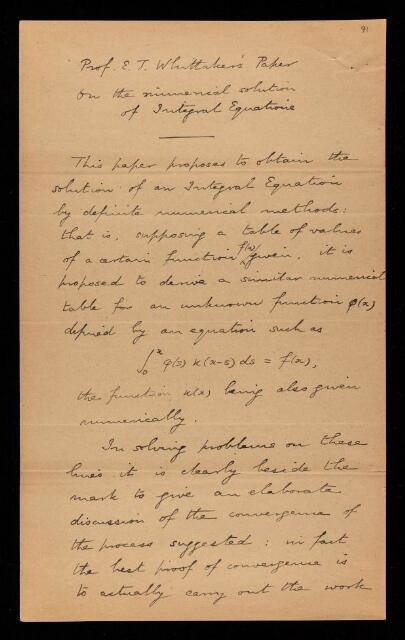 91
Prof. E. T. Whittaker's Paper
On the numerical solution
of Integral Equations
This paper proposes to obtain the
solution of an Integral Equation
by definite numerical methods:
that is, supposing a table of values
of a certain function f(x) given, it is
proposed to derive a similar numerical
table for an unknown function φ(x)
defined by an equation such as
∫₀ˣ φ(s) κ(x-s) ds = f(x),
the function κ(x) being also given
numerically.
In solving problems on these
lines it is clearly beside the
mark to give an elaborate
discussion of the convergence of
the process suggested: in fact
the best proof of convergence is
to actually carry out the work